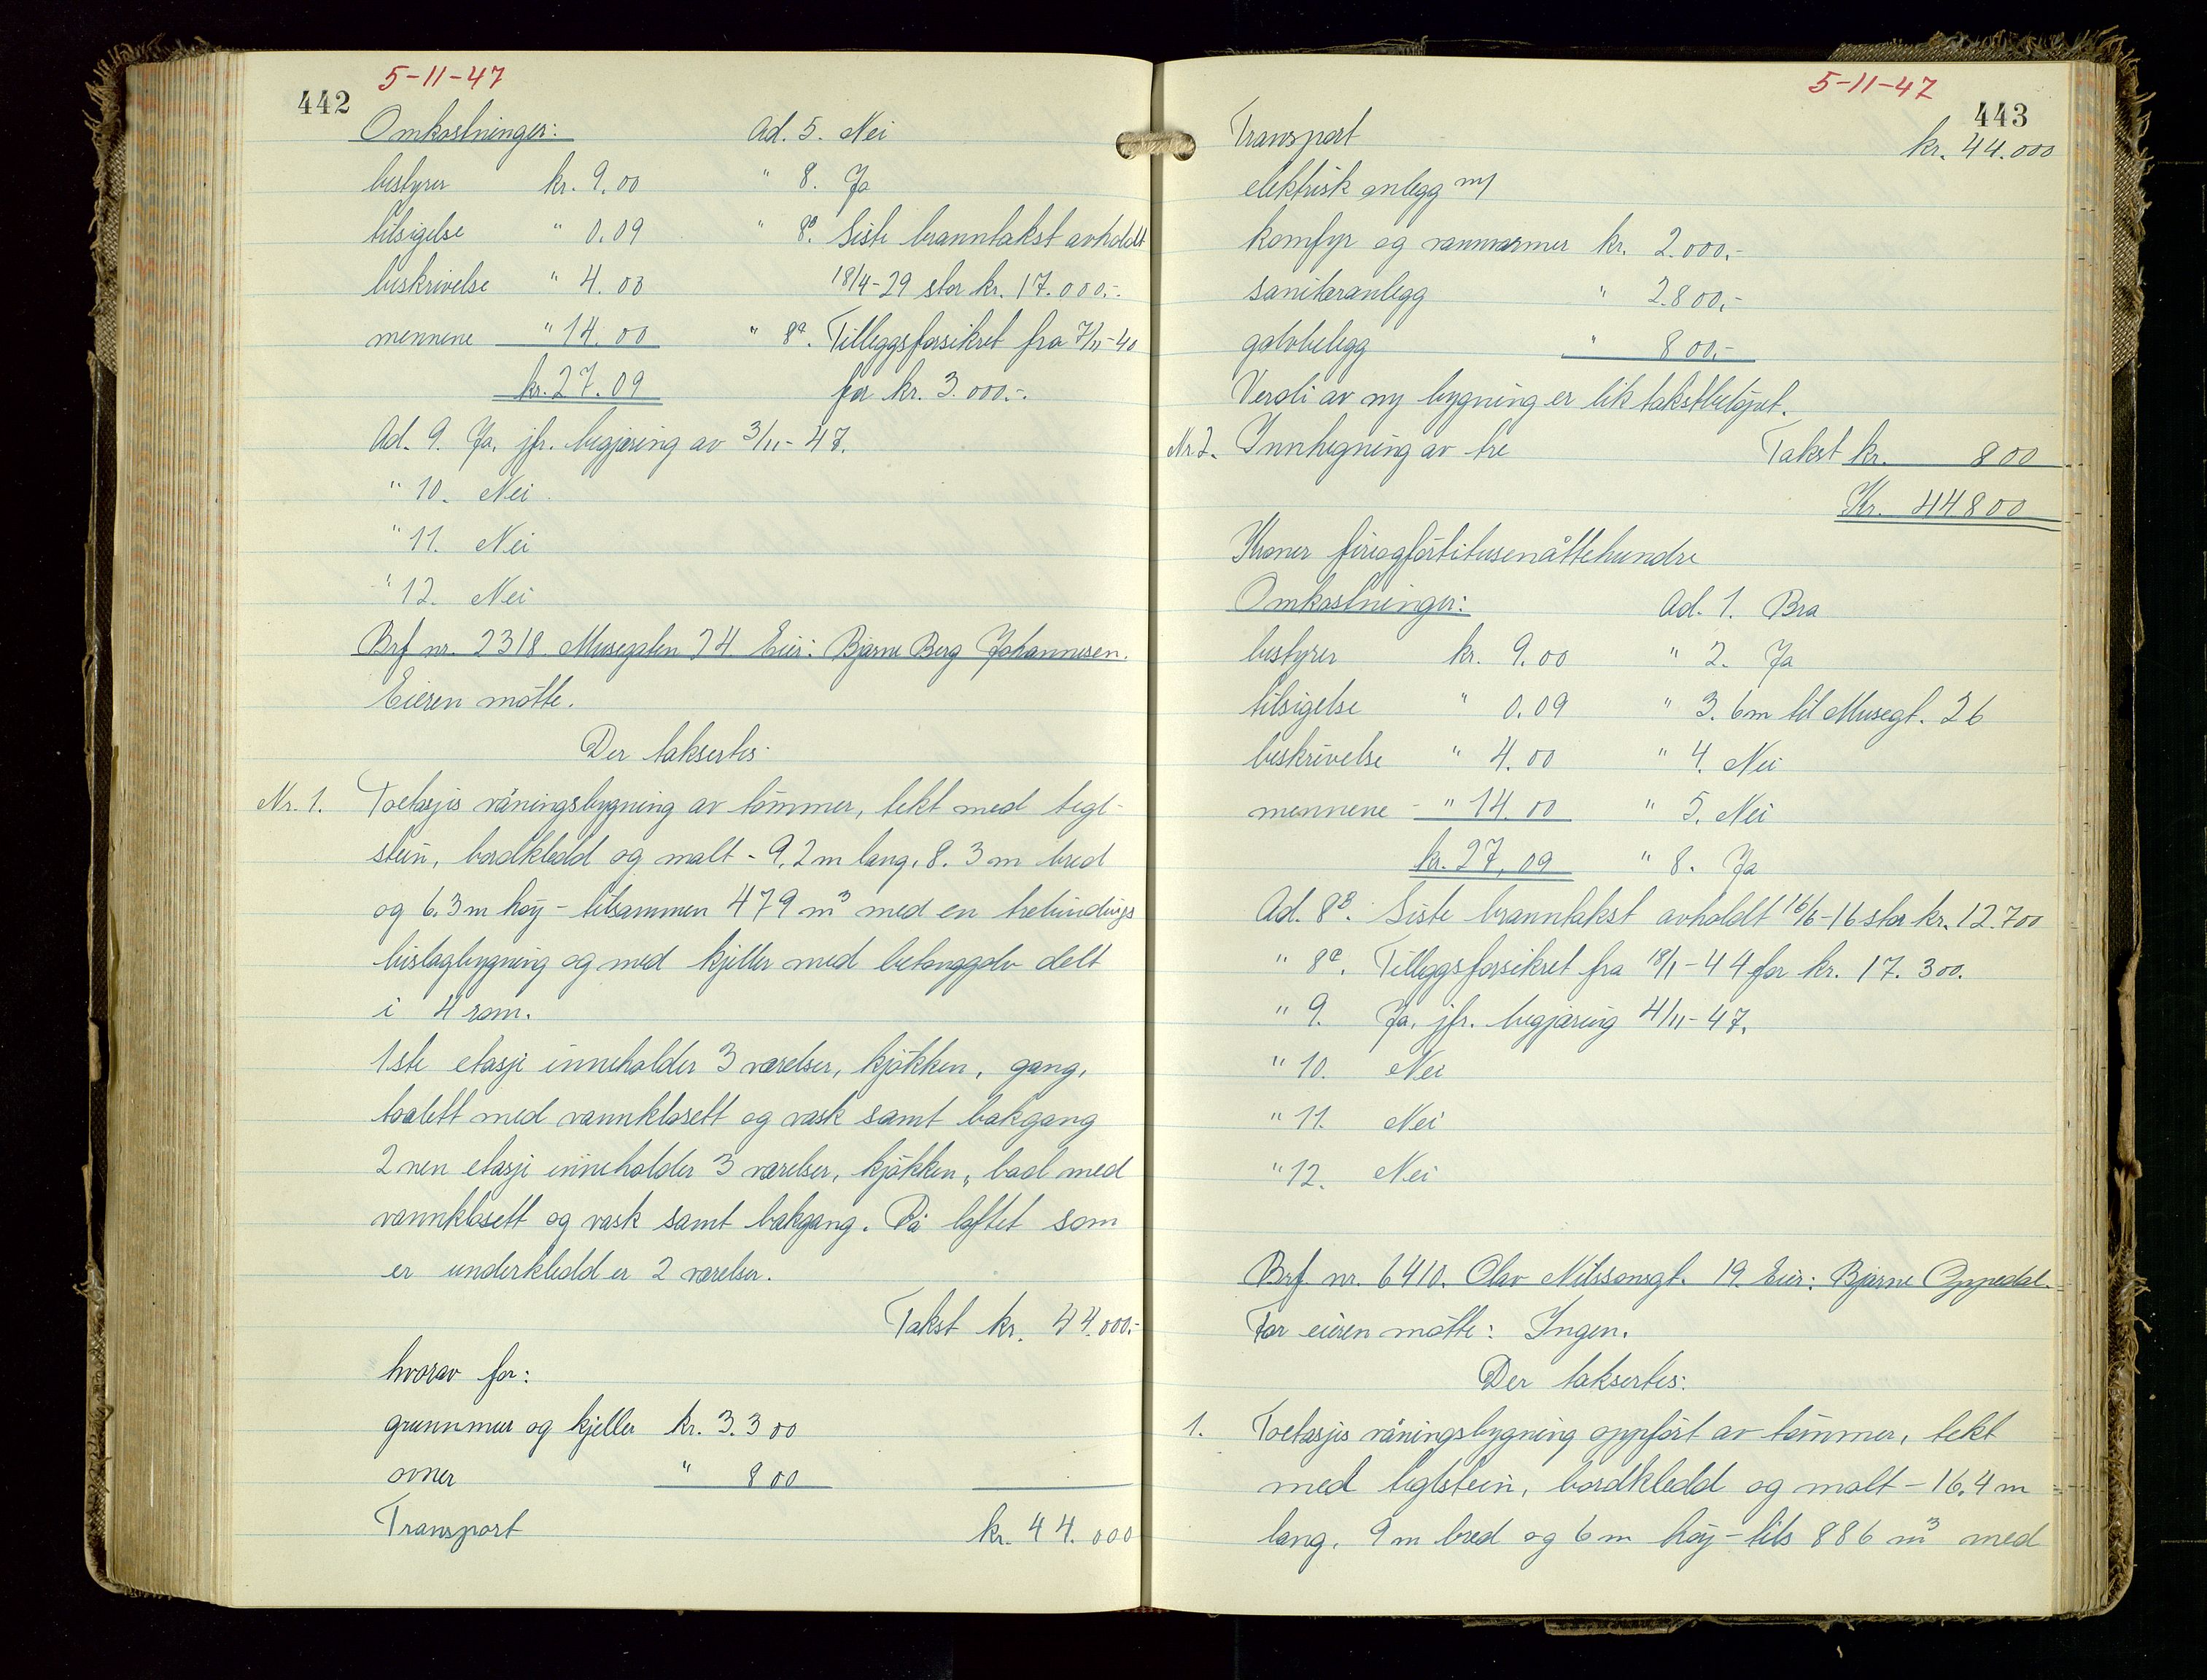 442
5-11-47
Omkostninger: Ad. 5. Nei
bestyrer kr. 9.00 " 8. Ja
tilsigelse " 0.09 " 8B. Siste branntakst avholdt
beskrivelse " 4.00 18/4-29 stor kr. 17.000.-.
mennene " 14.00 " 8a. Tilleggsforsikret fra 7/11-40
kr. 27.09 for kr. 3.000.-.
Ad. 9. Ja, jfr. begjæring av 3/11-47.
" 10. Nei.
" 11. Nei
" 12. Nei
Brf nr. 2318 Musegaten 24 Eier: Bjarne Berg Johannesen.
Eieren møtte.
Der taksertes:
Nr. 1. Toetasjes våningsbygning av tømmer, tekt med tegl-
stein, bordkledd og malt - 9,2 m lang, 8.3 m bred
og 6,3 m høy - tilsammen 479 m³ med en trebindings
bislagbygning og med kjeller med betonggolv delt
i 4 rom.
1ste etasje inneholder 3 værelser, kjøkken, gang,
toalett med vannklosett og vask samt bakgang
2nen etasje inneholder 3 værelser, kjøkken, bad med
vannklosett og vask samt bakgang. På loftet som
er underkledd er 2 værelser.
Takst kr. 44.000.-
hvorav for:
grunnmur og kjeller kr. 3.300
ovner " 800
Transport kr. 44.000
5-11-47
443
Transport kr. 44.000
elektrisk anlegg m/
komfyr og vannvarmer kr. 2.000.-
sanitæranlegg " 2.800.-
golvbelegg " 800.-
Verdi av ny bygning er lik takstbeløpet.
Nr. 2. Innhegning av tre Takst kr. 800
Kr. 44800
Kroner fireogførtitusenåttehundre
Omkostninger: Ad. 1. Bra
bestyrer kr. 9.00 " 2. Ja
tilsigelse " 0.09 " 3. 6m til Musegt. 26
beskrivelse " 4.00 " 4. Nei
mennene - " 14.00 " 5. Nei
kr. 27,09 " 8. Ja
Ad. 8B. Siste branntakst avholdt 16/6-16 stor kr. 12.700
" 8a. Tilleggsforsikret fra 18/1-44 for kr. 17.300.
" 9. Ja, jfr. begjæring 4/11-47.
" 10. Nei
" 11. Nei
" 12. Nei
Brf nr. 6410. Olav Nilssonsgt. 19. Eier: Bjarne Oppedal.
For eieren møtte: Ingen.
Der taksertes:
1. Toetasjes våningsbygning oppført av tømmer, tekt
med teglstein, bordkledd og malt - 16,4 m
lang, 9 m bred og 6 m høy - tils 886 m³ med